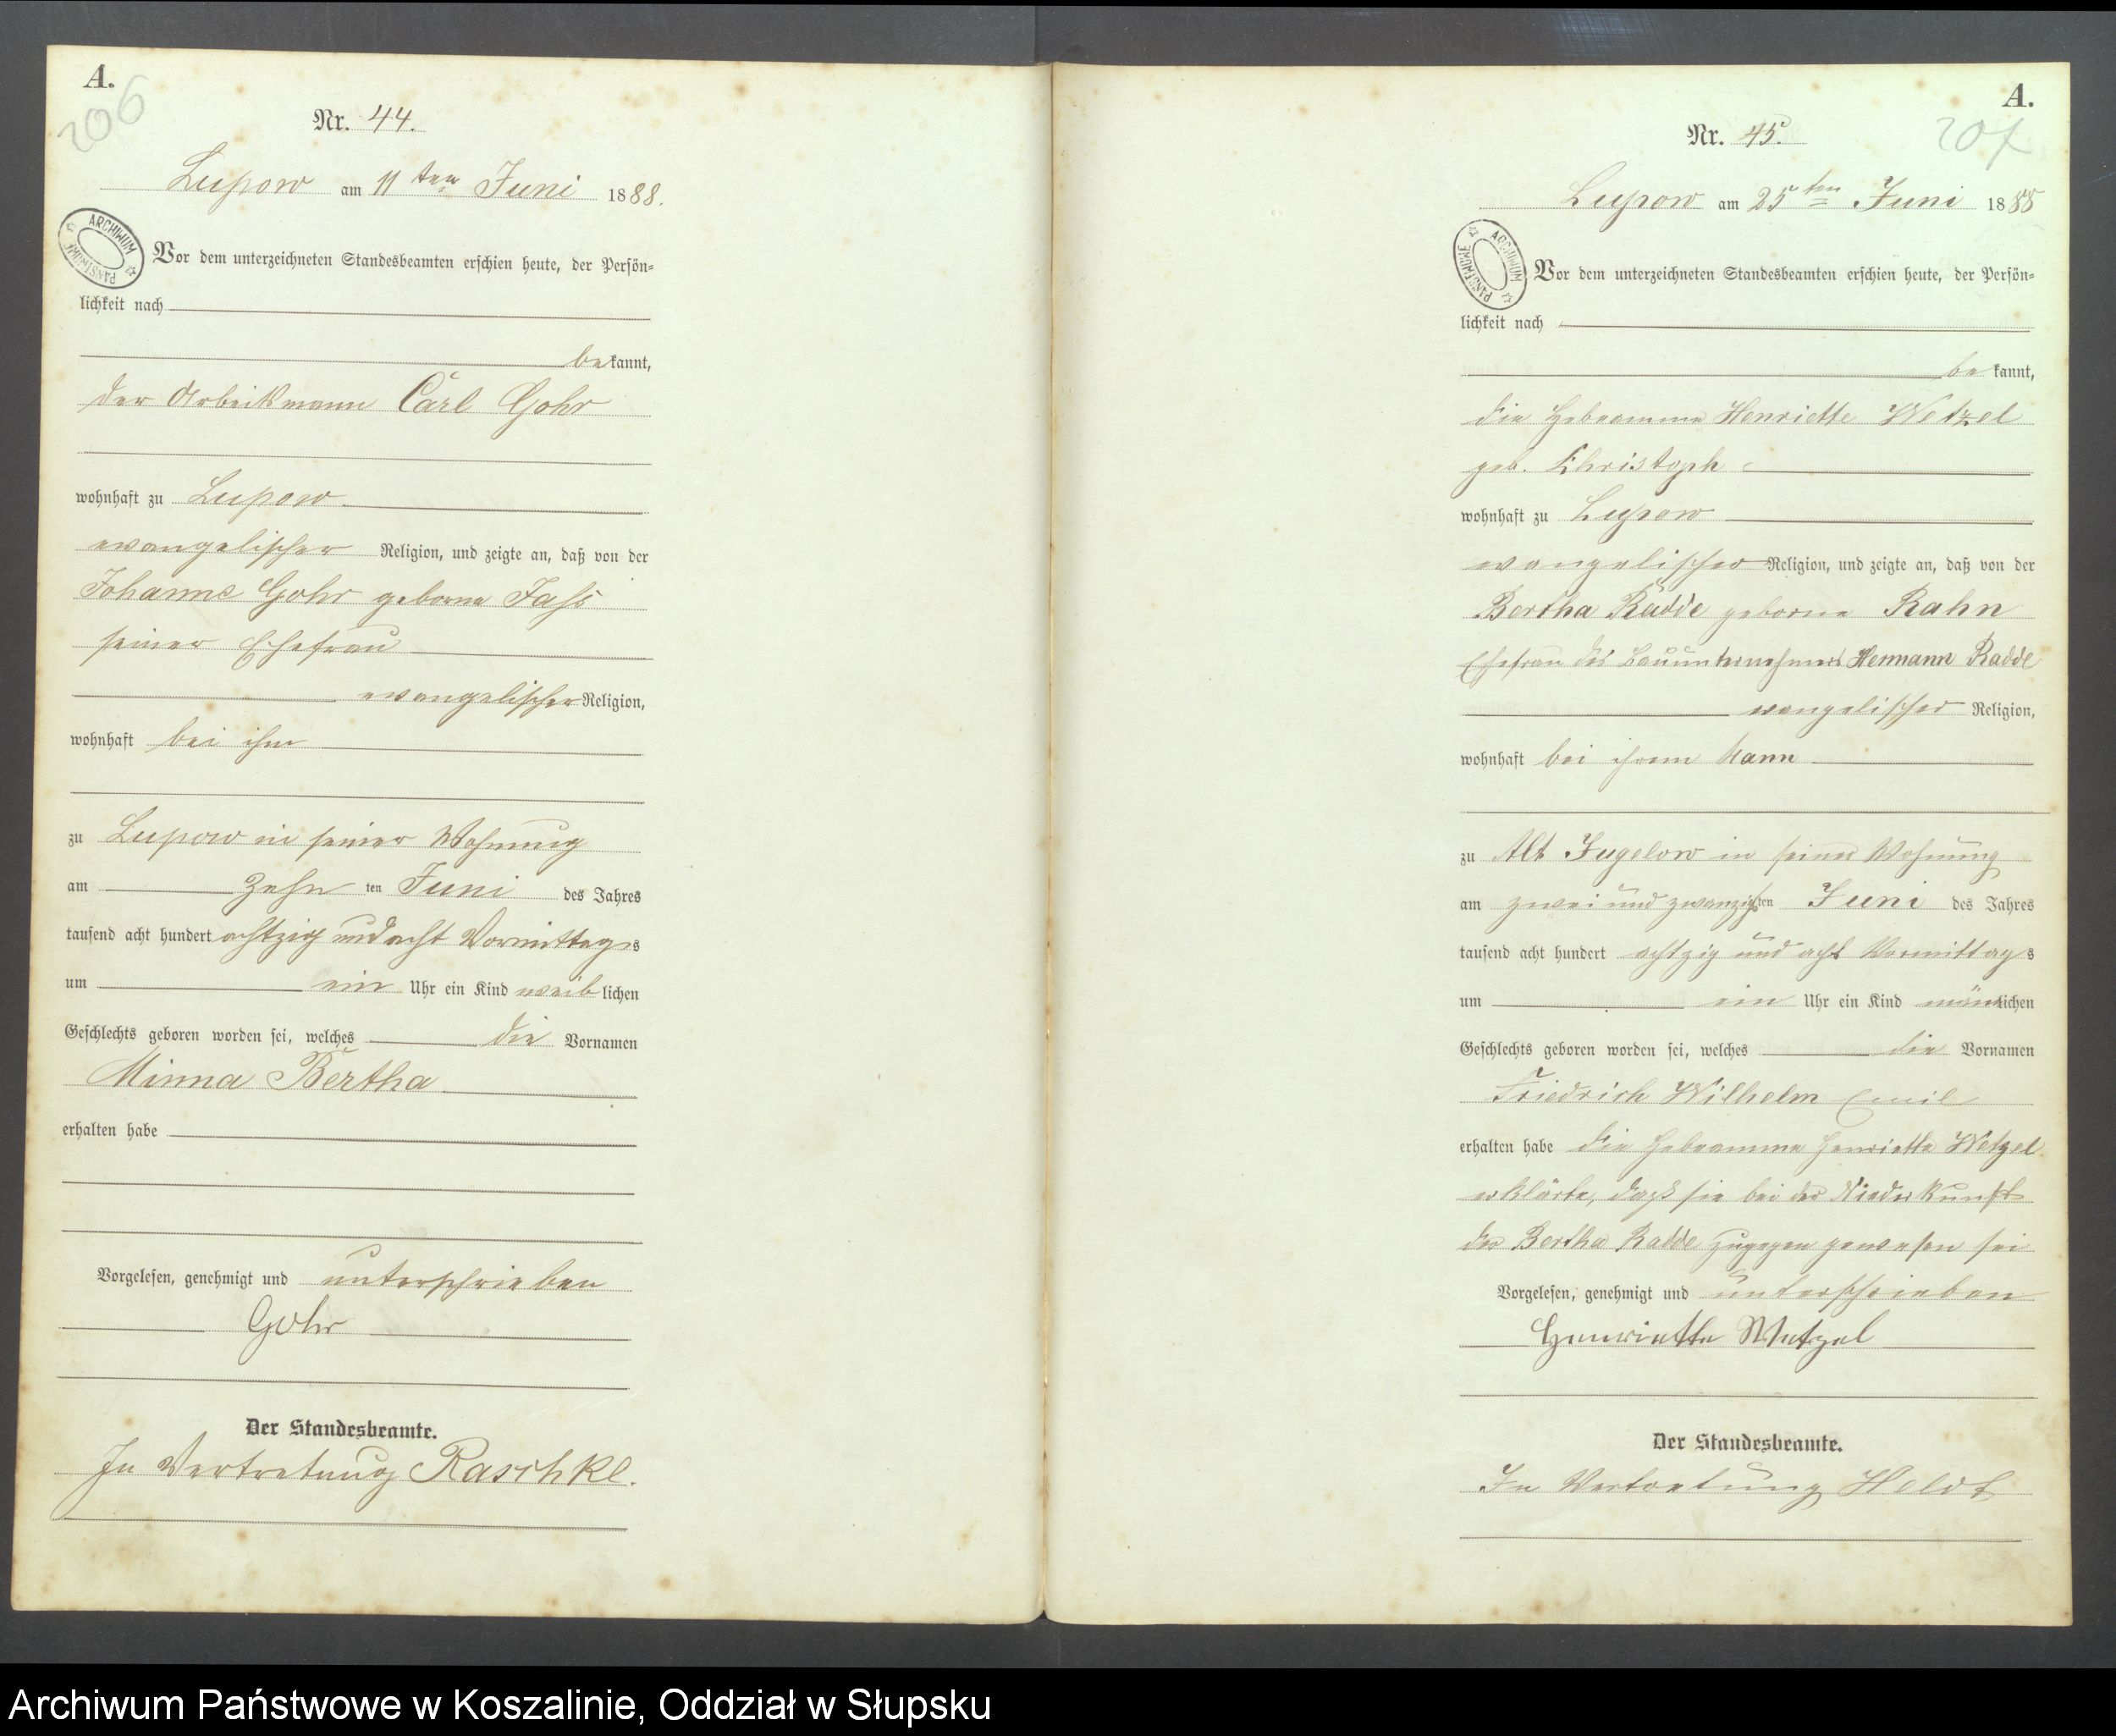 A.
206
Nr. 44.
Lupow am 11 ten Juni 1888.
ARCHIWUM PAŃSTWOWE
Vor dem unterzeichneten Standesbeamten erschien heute, der Persön=
lichkeit nach
bekannt,
der Arbeitsmann Carl Gohr
wohnhaft zu Lupow
evangelischer Religion, und zeigte an, daß von der
Johanne Gohr geborne Jass
seiner Ehefrau
evangelischer Religion,
wohnhaft bei ihm
zu Lupow in seiner Wohnung
am zehn ten Juni des Jahres
tausend acht hundert achtzig und acht Vormittags
um ein Uhr ein Kind weiblichen
Geschlechts geboren worden sei, welches die Vornamen
Minna Bertha
erhalten habe
Vorgelesen, genehmigt und unterschrieben
Gohr
Der Standesbeamte.
In Vertretung Raschke.
A.
207
Nr. 45.
Lupow am 25 ten Juni 1888
ARCHIWUM PAŃSTWOWE
Vor dem unterzeichneten Standesbeamten erschien heute, der Persön=
lichkeit nach
bekannt,
die Hebeamme Henriette Wetzel
geb. Christoph
wohnhaft zu Lupow
evangelischer Religion, und zeigte an, daß von der
Bertha Radde geborne Rahn
Ehefrau des Bauunternehmers Hermann Radde
evangelischer Religion,
wohnhaft bei ihrem Mann
zu Alt Jugelow in seiner Wohnung
am zwei und zwanzigsten Juni des Jahres
tausend acht hundert achtzig und acht Vormittags
um ein Uhr ein Kind männlichen
Geschlechts geboren worden sei, welches die Vornamen
Friedrich Wilhelm Emil
erhalten habe die Hebeamme Henriette Wetzel
erklärte, dass sie bei der Niederkunft
der Bertha Radde zugegen gewesen sei
Vorgelesen, genehmigt und unterschrieben
Henriette Wetzel
Der Standesbeamte.
In Vertretung Heldt
Archiwum Państwowe w Koszalinie, Oddział w Słupsku